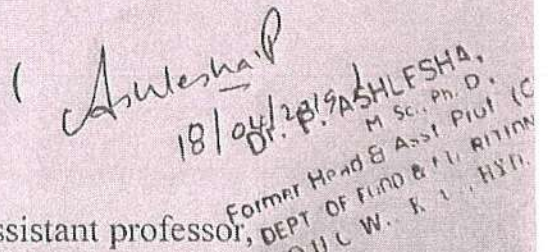 ( Ashlesha.P
18/04/2019
Dr. P. ASHLESHA,
M Sc., Ph. D.
Former Head & Asst Prof (C
DEPT OF FOOD &
U C W., K , HYD.
ssistant professor,